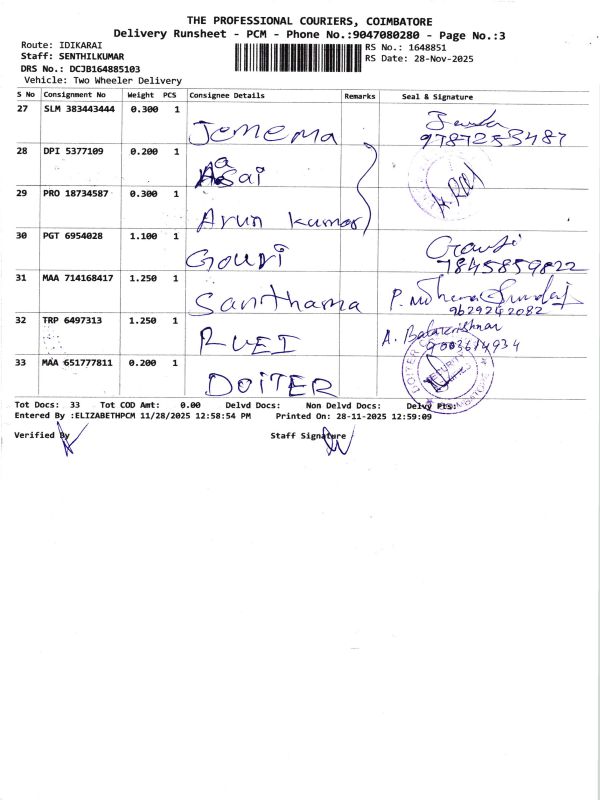 THE PROFESSIONAL COURIERS, COIMBATORE
Delivery Runsheet - PCM - Phone No.:9047080280 - Page No.:3
Route: IDIKARAI
RS No.: 1648851
Staff: SENTHILKUMAR
RS Date: 28-Nov-2025
DRS No.: DCJB164885103
Vehicle: Two Wheeler Delivery
S No Consignment No Weight PCS Consignee Details Remarks Seal & Signature
27 SLM 383443444 0.300 1 Jemema
9787253487
28 DPI 5377109 0.200 1 Asai
29 PRO 18734587 0.300 1 Arun kumar
30 PGT 6954028 1.100 1 Gouri
7845859822
31 MAA 714168417 1.250 1 Santhama
9629242082
32 TRP 6497313 1.250 1
A. Balakrishnan
9003614934
33 MAA 651777811 0.200 1 DOITER
SECURITY
Tot Docs: 33 Tot COD Amt: 0.00 Delvd Docs: Non Delvd Docs: Delvy Pts:
Entered By :ELIZABETHPCM 11/28/2025 12:58:54 PM Printed On: 28-11-2025 12:59:09
Verified By Staff Signature